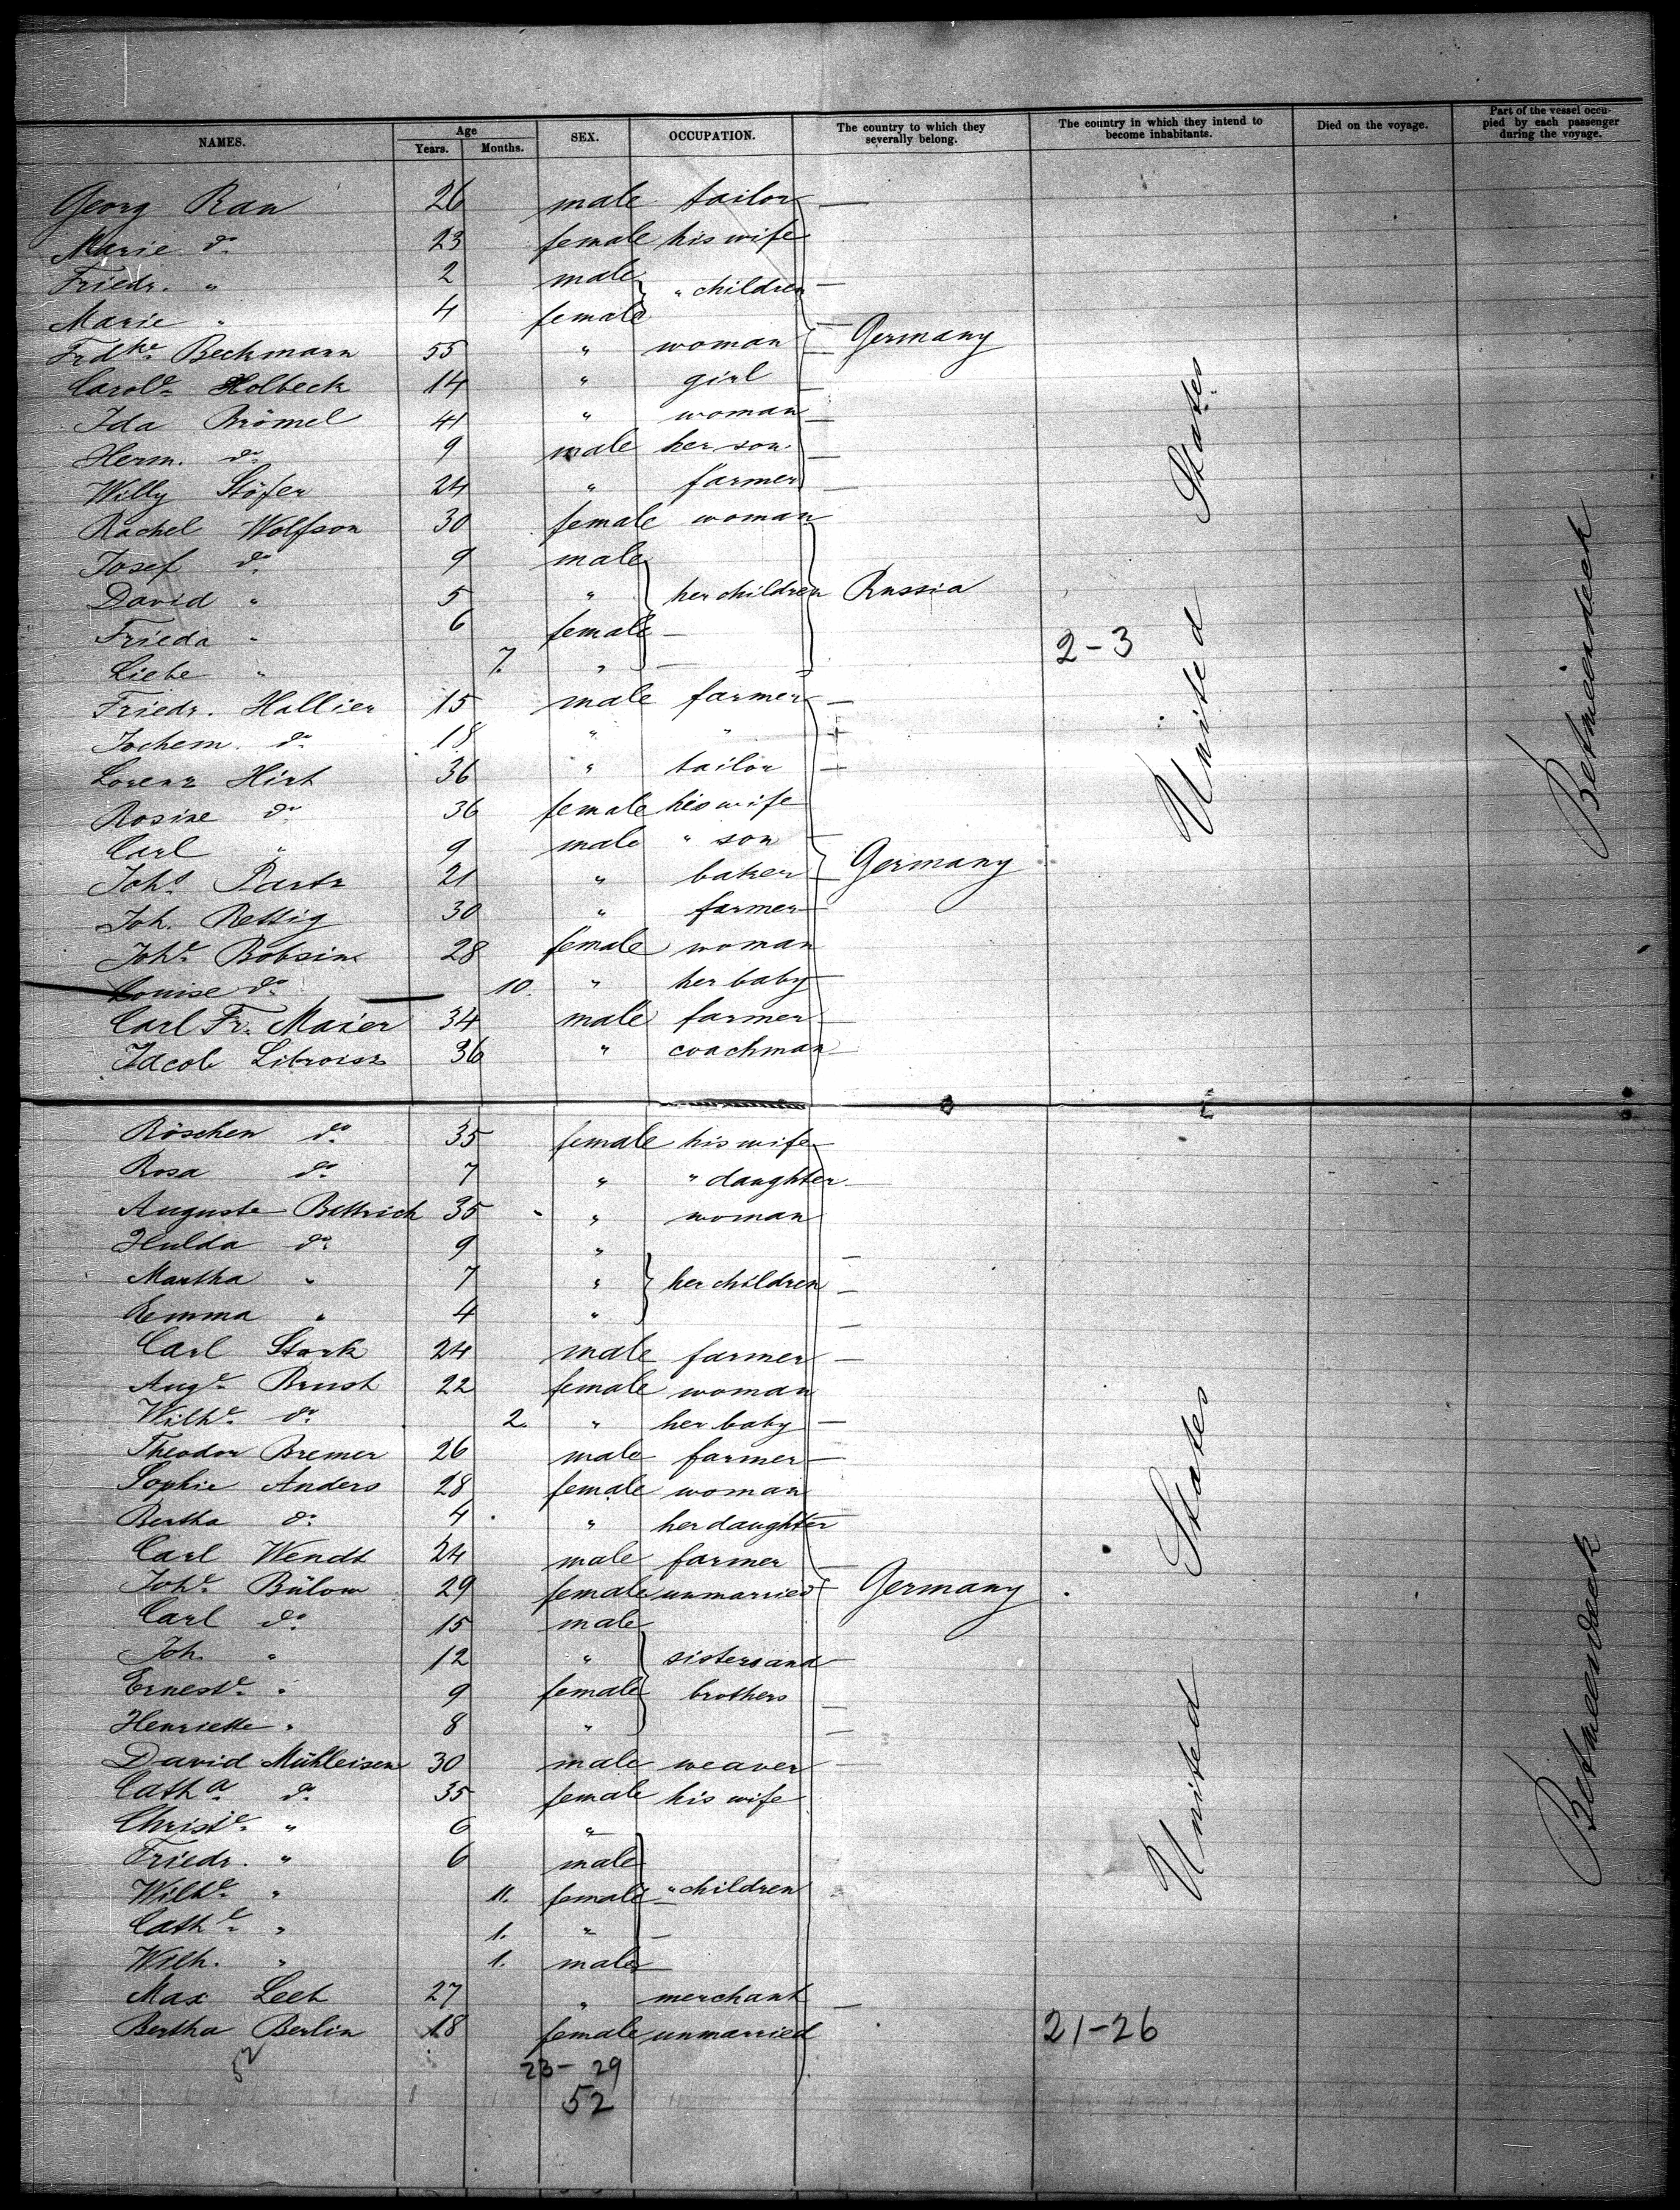 NAMES. Age Years. Months. SEX. OCCUPATION. The country to which they severally belong. The country in which they intend to become inhabitants. Died on the voyage. Part of the vessel occupied by each passenger during the voyage.
Georg Rau 26 male tailor
Marie do 23 female his wife
Friedr. " 2 male " children
Marie " 4 female
Frdke Beckmann 55 " woman Germany
Carole Holbeck 14 " girl
Ida Brömel 41 " woman
Herm. do 9 male her son
Willy Stöfer 24 " farmer
Rachel Wolfson 30 female woman
Josef do 9 male
David " 5 " her children Russia
Frieda " 6 female
Liebe " 7. " 2-3
Friedr. Hallier 15 male farmer
Jochem. do 18 " "
Lorenz Hirt 36 " tailor
Rosine do 36 female his wife
Carl " 9 male " son
Johs Partz 21 " baker Germany
Joh. Rettig 30 " farmer
Johe Bobsin 28 female woman
Louise do 10. " her baby
Carl Fr. Maier 34 male farmer
Jacob 36 " coachman
United States
Betweendeck
Röschen do 35 female his wife
Rosa do 7 " " daughter
Auguste Bettrich 35 " woman
Hulda do 9 "
Martha " 7 " her children
Emma " 4 "
Carl Stark 24 male farmer
Auge Brust 22 female woman
Wilhe do 2. " her baby
Theodor Bremer 26 male farmer
Sophie Anders 28 female woman
Bertha do 4 " her daughter
Carl Wendt 24 male farmer
Johe Bülow 29 female unmarried Germany
Carl do 15 male
Joh. " 12 " sisters and
Erneste " 9 female brothers
Henriette " 8 "
David Mühleisen 30 male weaver
Catha do 35 female his wife
Christe " 6 "
Friedr. " 6 male
Wilhe " 11. female " children
Cathe " 1. "
Wilh. " 1. male
Max Leeb 27 " merchant
Bertha Berlin 18 female unmarried 21-26
United States
Betweendeck
52 23-29
52